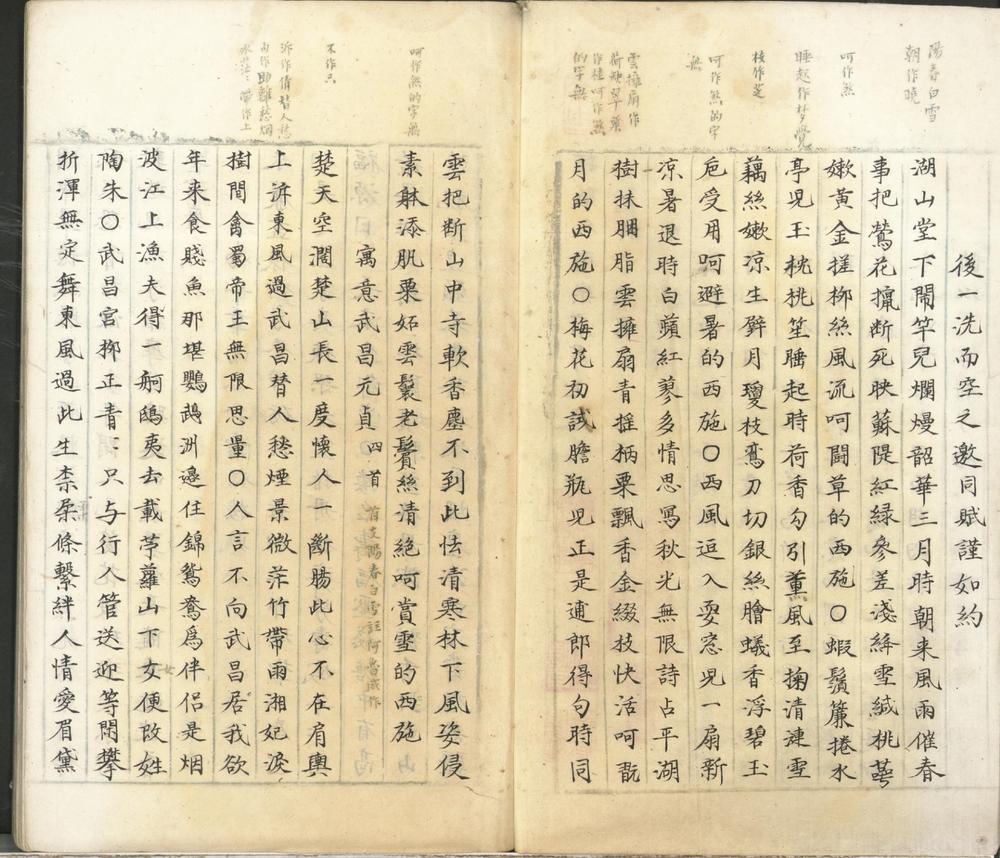 後一洗而空之邀同賦謹如約
湖山堂下鬧竿兒爛熳韶華三月時朝来風雨催春
事把鶯花撺断死映蘇隄紅緑參差淺絳雪緘桃萼
嫰黄金搓柳絲風流呵鬪草的西施〇蝦鬚簾捲水
亭児玉枕桃笙睡起時荷香勾引薰風至掬清漣雪
藕絲嫰凉生臂月瓊枝鸞刀切銀絲膾蟻香浮碧玉
巵受用呵避暑的西施〇西風逗入耍窓児一扇新
凉暑退時白蘋紅蓼多情思寫秋光無限詩占平湖
樹抹胭脂雲擁扇青揺柄粟飄香金綴枝快活呵翫
月的西施〇梅花初試膽瓶児正是逋郎得句時同
陽春白雪
朝作曉
呵作煞
睡起作梦覺
枝作芝
呵作煞的字
無
雲擁扇作
荷缺翠減
作桂呵作煞
的字無
雲把断山中寺軟香塵不到此怯清寒林下風姿侵
素躰添肌粟妬雲鬟老鬢絲清絶呵賞雪的西施
寓意武昌元貞 四首
楚天空濶楚山長一度懷人一斷腸此心不在肩輿
上泝東風過武昌替人愁煙景微茫竹帶雨湘妃淚
樹間禽蜀帝王無限思量〇人言不向武昌居我欲
年来食賤魚那堪鸚鵡洲邉住錦鴛鴦爲伴侣是烟
波江上漁夫得一舸鴟夷去載苧蘿山下女便改姓
陶朱〇武昌宮柳正青只与行人管送迎等閒攀
折渾無定舞東風過此生柰柔條繫絆人情愛眉黛
呵作煞的字無
不作只
泝作倩替人愁
向作助離愁烟
水茫茫帶作上